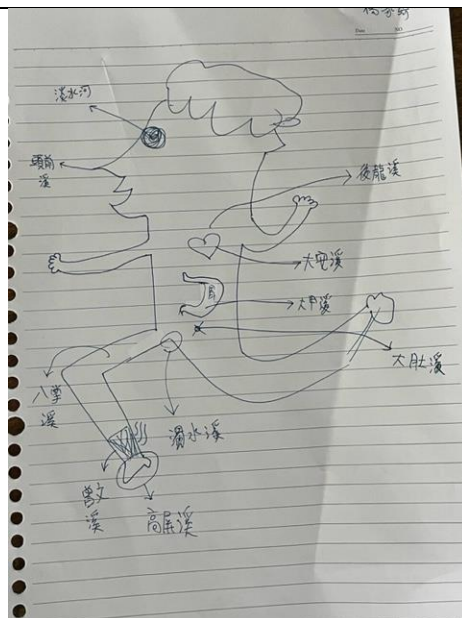 Date
NO.
淡水河
頭前
溪
後龍溪
大安溪
胃
大甲溪
大肚溪
八掌
溪
濁水溪
曾文
溪
高屏溪